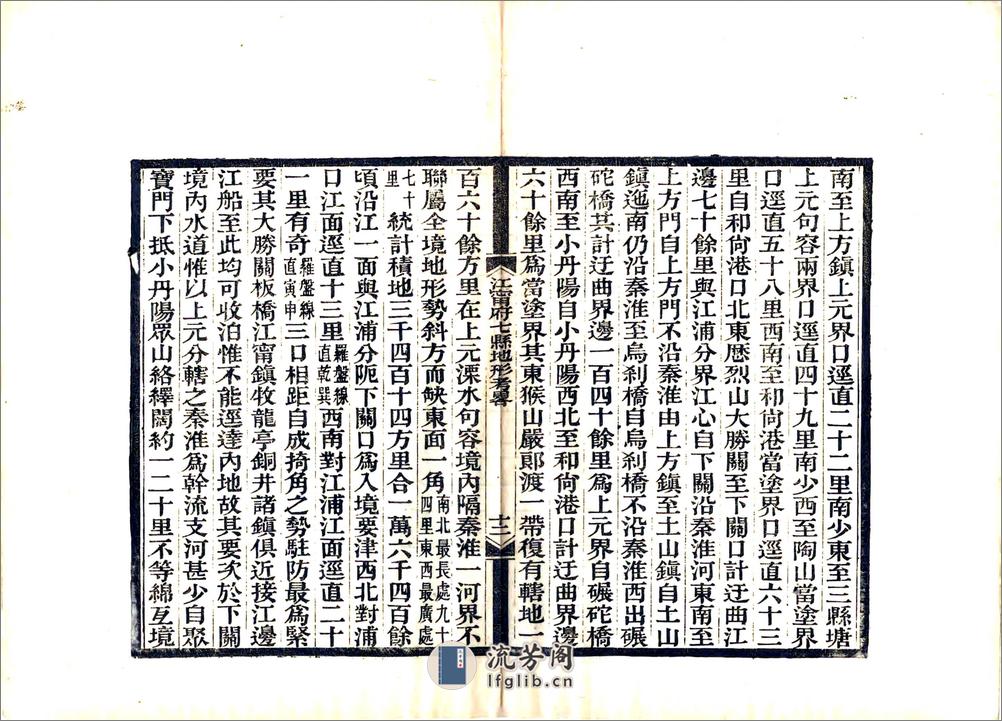 南至上方鎮上元界口逕直二十二里南少東至三縣塘
上元句容兩界口逕直四十九里南少西至陶山當塗界
口逕直五十八里西南至和尙港當塗界口逕直六十三
里自和尙港口北東歷烈山大勝關至下關口計迂曲江
邊七十餘里與江浦分界江心自下關沿秦淮河東南至
上方門自上方門不沿秦淮由上方鎮至土山鎮自土山
鎮迤南仍沿秦淮至烏刹橋自烏刹橋不沿秦淮西出碾
砣橋其計迂曲界邊一百四十餘里爲上元界自碾砣橋
西南至小丹陽自小丹陽西北至和尙港口計迂曲界邊
六十餘里爲當塗界其東猴山嚴郞渡一帶復有轄地一
江甯府七縣地形考畧
十二
百六十餘方里在上元溧水句容境內隔秦淮一河界不
聯屬全境地形勢斜方而缺東面一角南北最長處九十四里東西最廣處
七十里統計積地三千四百十四方里合一萬六千四百餘
頃沿江一面與江浦分阨下關口爲入境要津西北對浦
口江面逕直十三里羅盤線直乾巽西南對江浦江面逕直二十
一里有奇羅盤線直寅申三口相距自成掎角之勢駐防最爲緊
要其大勝關板橋江甯鎮牧龍亭銅井諸鎮俱近接江邊
江船至此均可收泊惟不能逕達內地故其要次於下關
境內水道惟以上元分轄之秦淮爲幹流支河甚少自聚
寶門下抵小丹陽眾山絡繹闊約一二十里不等綿亙境
流芳阁
lfglib.cn